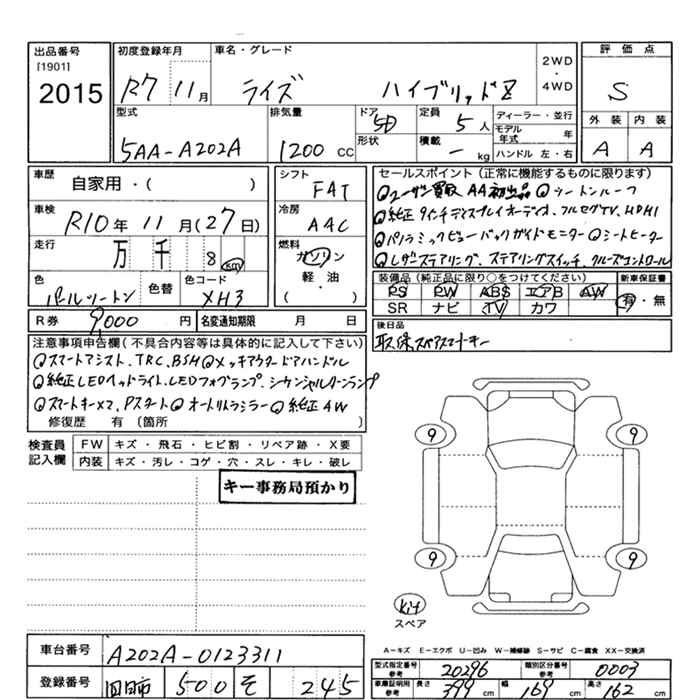 出品番号 初度登録年月 車名・グレード 2WD・4WD 評価点
[1901]
2015 R7 11月 ライズ ハイブリッドZ S
型式 排気量 ドア 5D 定員 5人 ディーラー・並行 外装 内装
5AA-A202A 1200cc 形状 積載 - kg モデル年式 年 A A
ハンドル 左・右
車歴 自家用・( ) シフト FAT セールスポイント(正常に機能するものに限ります)
車検 R10年 11月(27日) 冷房 AAC
◎ユーザー買取 AA初出品◎ツートンルーフ
◎純正9インチディスプレイオーディオ、フルセグTV、HDMI
◎パノラミックビュー バックガイドモニター◎シートヒーター
◎レザーステアリング、ステアリングスイッチ、クルーズコントロール
走行 万 千 8 km 燃料 ガソリン・軽油 ( )
色 パールツートン 色替 色コード XH3
装備品(純正品に限り○をつけてください) 新車保証書
PS PW ABS エアB AW 有・無
SR ナビ TV カワ
R券 9,000円 名変通知期限 月 日
後日品
取保 スペアスマートキー
注意事項申告欄(不具合内容等は具体的に記入して下さい)
◎スマートアシスト、TRC、BSM◎メッキアウタードアハンドル
◎純正LEDヘッドライト、LEDフォグランプ、シーケンシャルターンランプ
◎スマートキー×2、Pスタート◎オートリトラミラー◎純正AW
修復歴 有(箇所
検査員記入欄 FW キズ・飛石・ヒビ割・リペア跡・X要
内装 キズ・汚レ・コゲ・穴・スレ・キレ・破レ
キー事務局預かり
9 9
9 9
Kit
スペア
A-キズ E-エクボ U-凹み W-補修跡 S-サビ C-腐食 XX-交換済
車台番号 A202A-0123311
型式指定番号 参考 20296 類別区分番号 参考 0003
登録番号 四日市 500 そ 245
車庫証明用 参考 長さ 399cm 幅 169cm 高さ 162cm